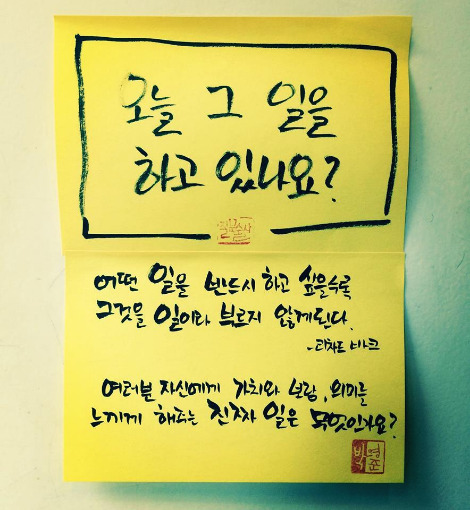 오늘 그 일을
하고 있나요?
어떤 일을 반드시 하고 싶을수록
그것을 일이라 부르지 않게된다.
-리차드 바크
여러분 자신에게 가치와 보람, 의미를
느끼게 해주는 진짜 일은 무엇인가요?
박영준